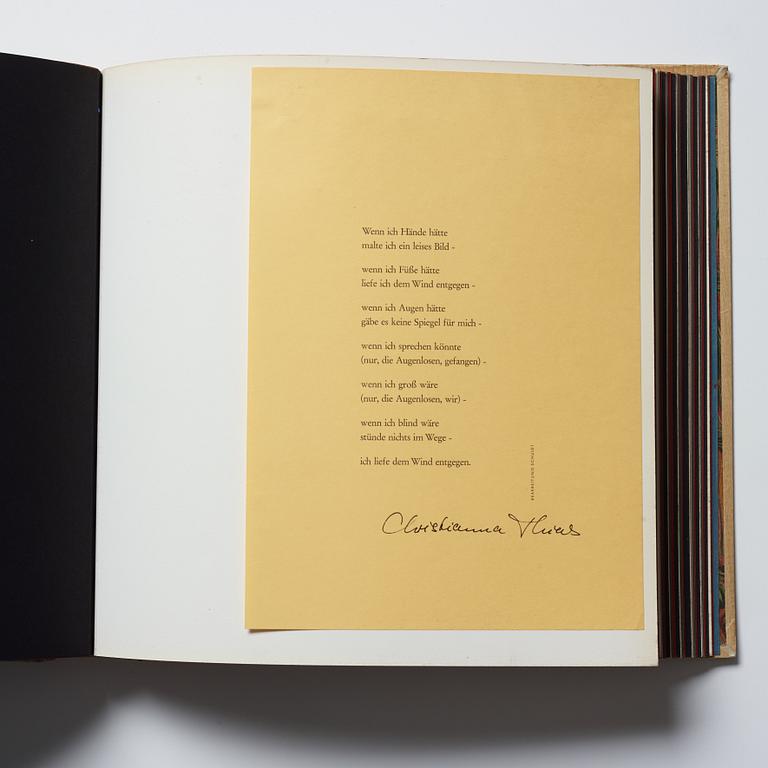 Wenn ich Hände hätte
malte ich ein leises Bild -
wenn ich Füße hätte
liefe ich dem Wind entgegen -
wenn ich Augen hätte
gäbe es keine Spiegel für mich -
wenn ich sprechen könnte
(nur, die Augenlosen, gefangen) -
wenn ich groß wäre
(nur, die Augenlosen, wir) -
wenn ich blind wäre
stünde nichts im Wege -
ich liefe dem Wind entgegen.
Christianna